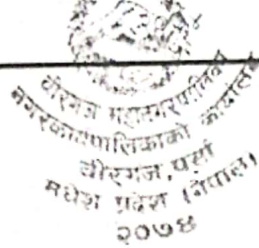 वीरगंज महानगरपालिका
नगरकार्यपालिकाको कार्यालय
वीरगंज, पर्सा
मधेश प्रदेश (नेपाल)
२०७४